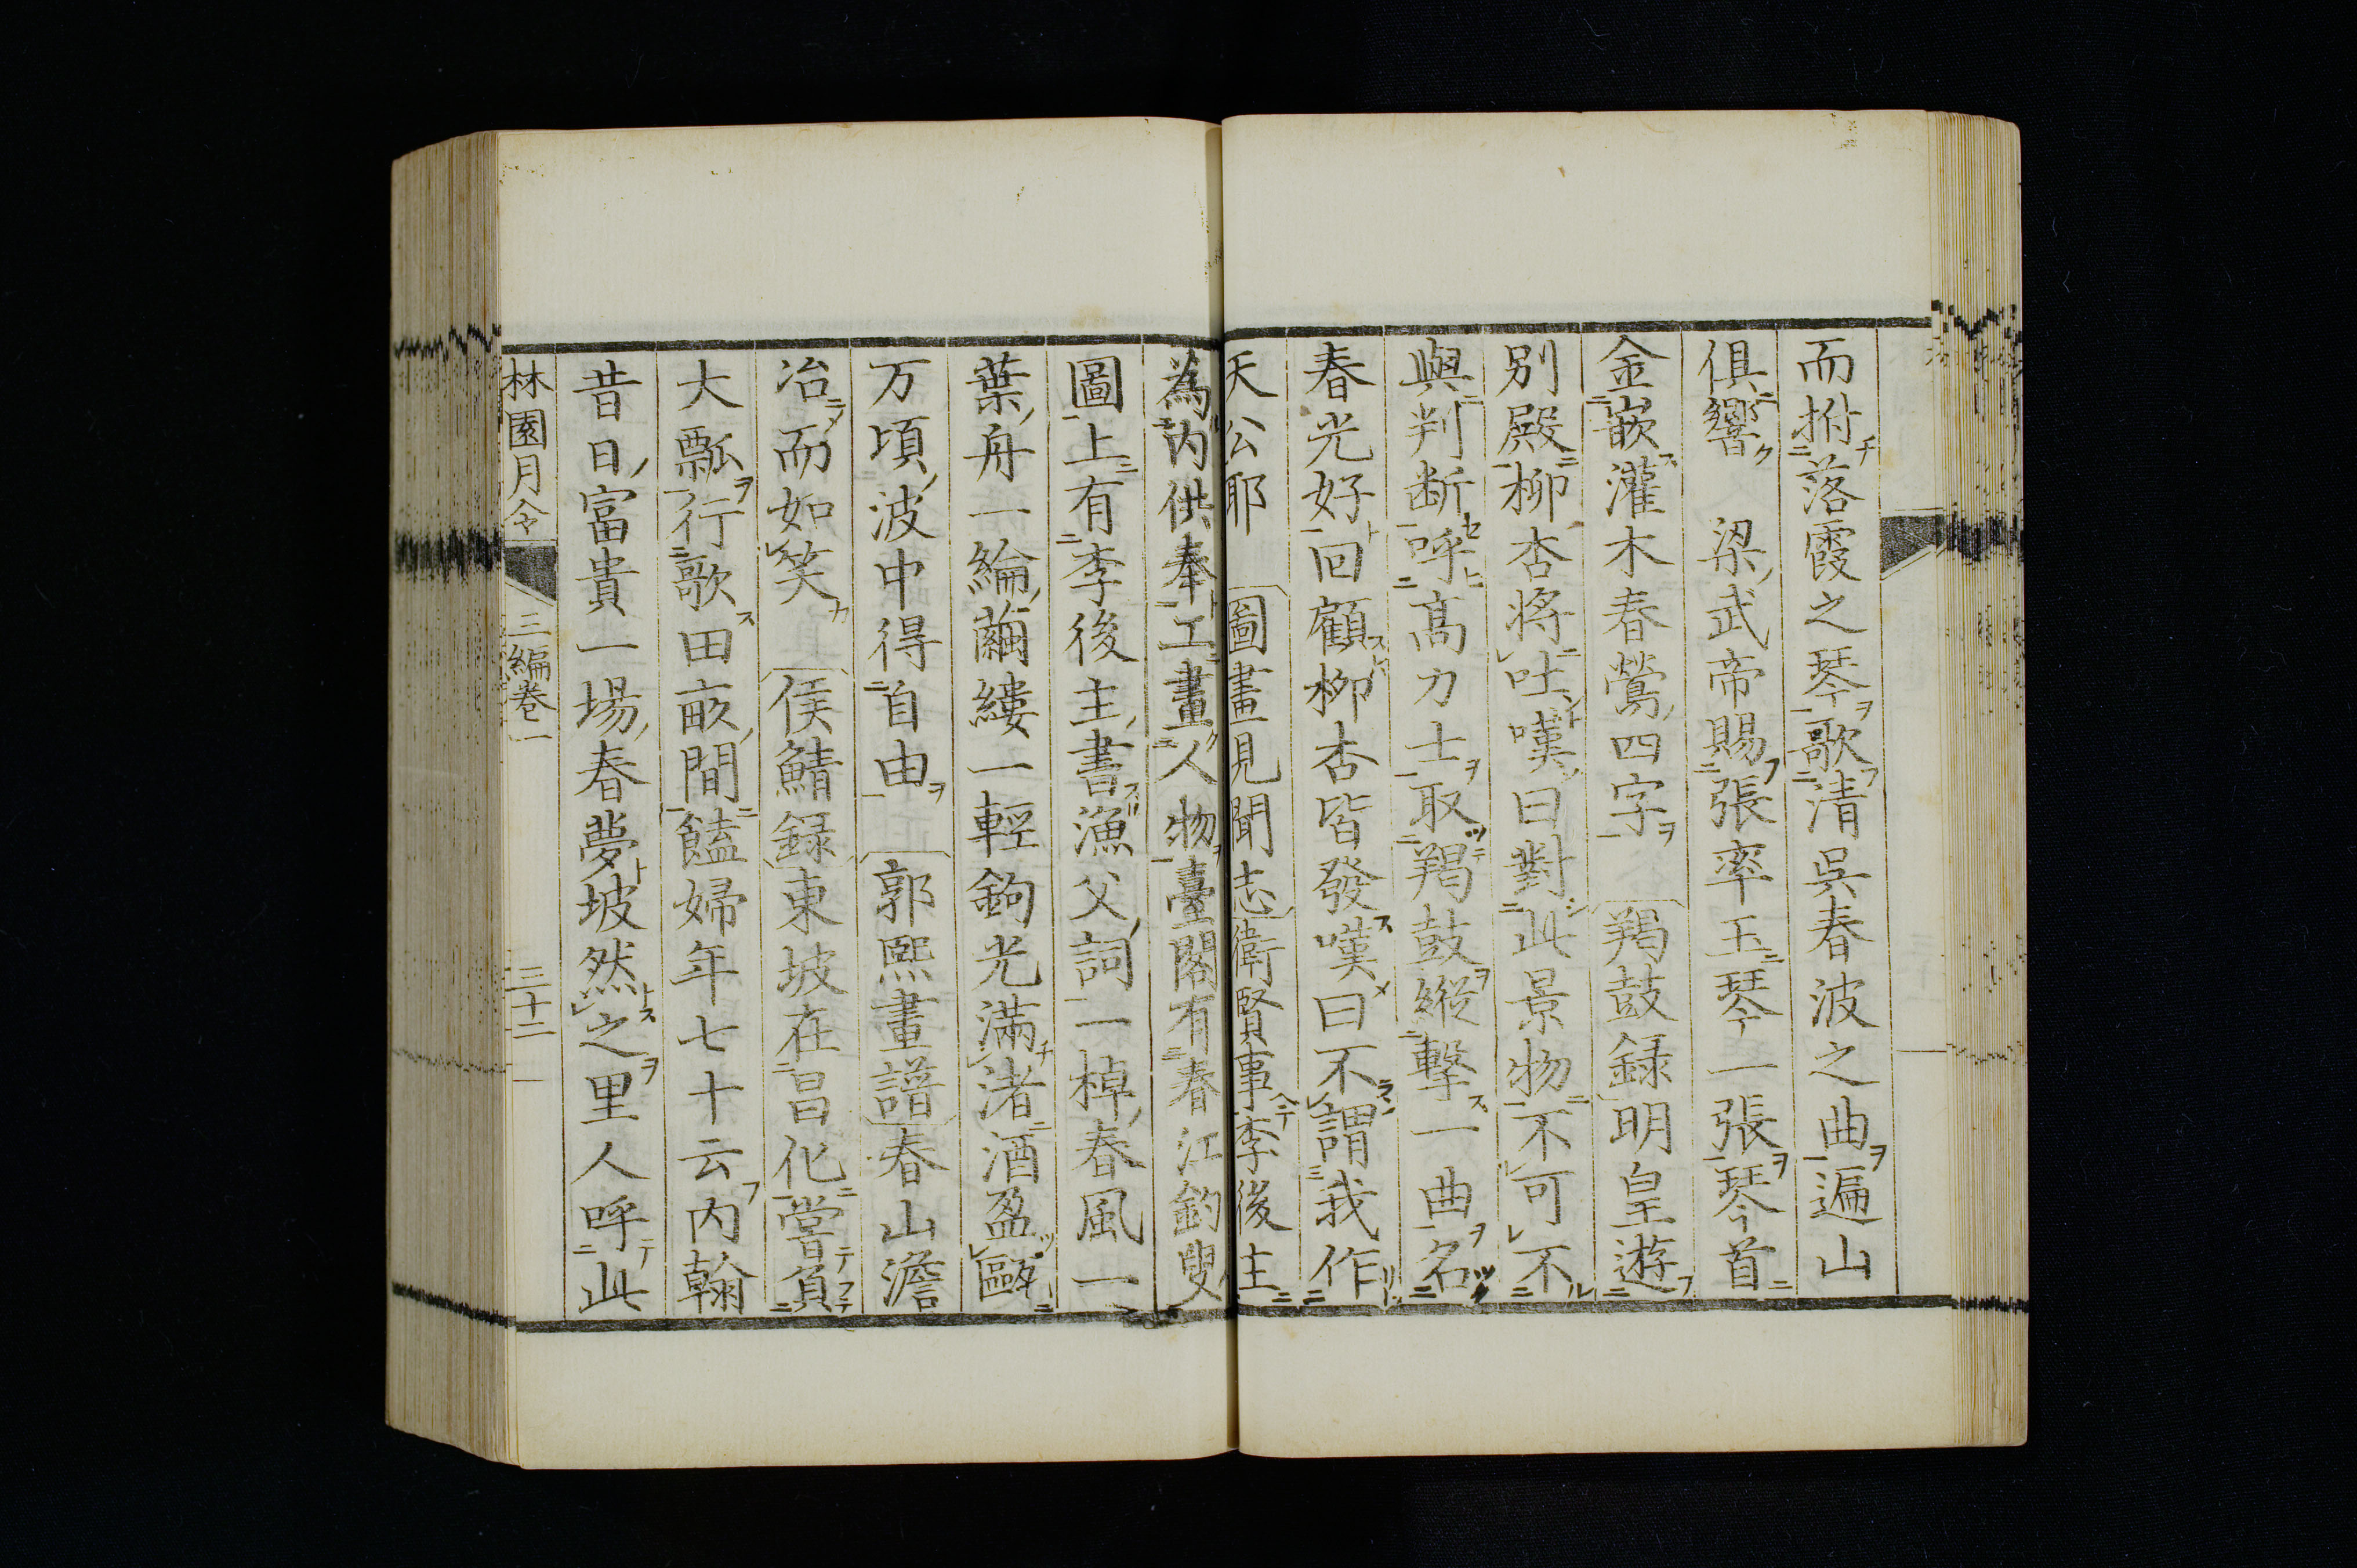 而拊落霞之琴歌清吳春波之曲遍山
俱響　梁武帝賜張率玉琴一張琴首
金嵌灌木春鶯四字　羯鼓録明皇遊
別殿柳杏將吐嘆曰對此景物不可不
與判断呼高力士取羯鼓縱擊一曲名
春光好回顧柳杏皆發嘆曰不謂我作
天公耶　圖畫見聞志衛賢事李後主
為内供奉工畫人物臺閣有春江釣叟
圖上有李後主書漁父詞一棹春風一
葉舟一綸繭縷一輕鉤光滿渚酒盈甌
万頃波中得自由　郭熙畫譜春山澹
冶而如笑　侯鯖録東坡在昌化嘗負
大瓢行歌田畝間饁婦年七十云内翰
昔日富貴一場春夢坡然之里人呼此
林園月令　三編卷一　三十二